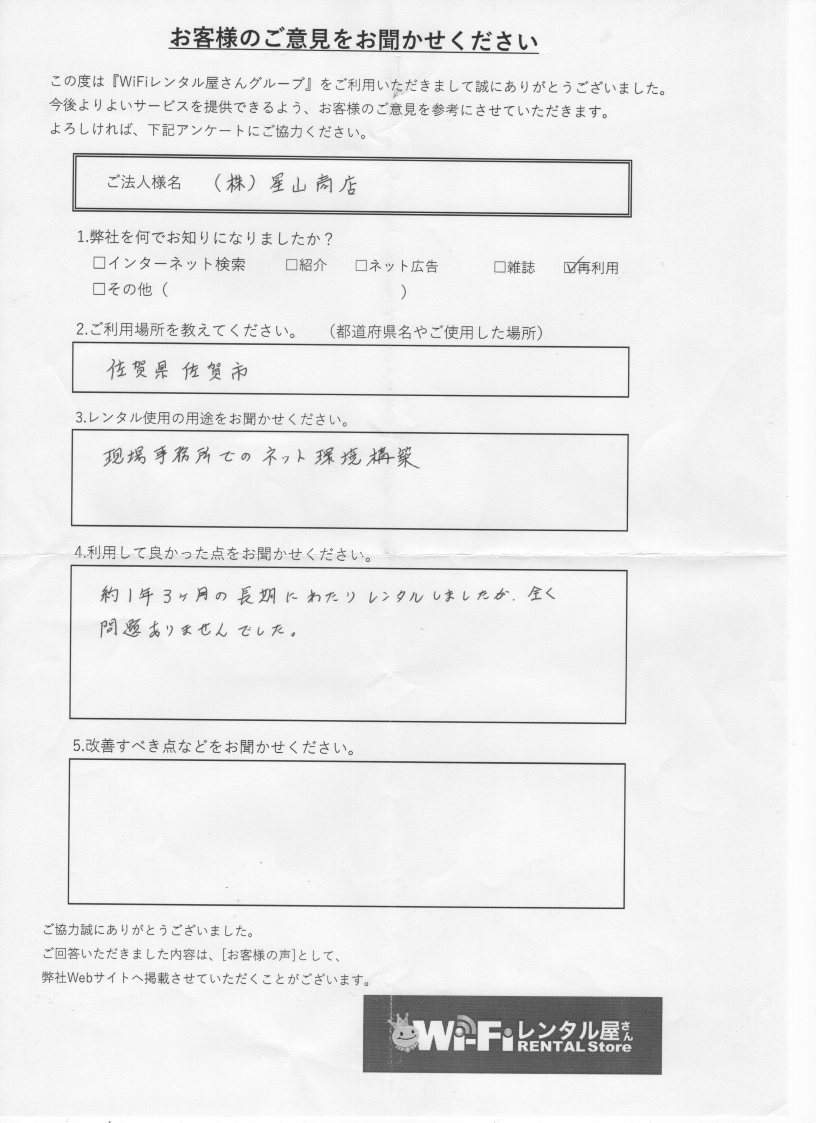 お客様のご意見をお聞かせください
この度は『WiFiレンタル屋さんグループ』をご利用いただきまして誠にありがとうございました。
今後よりよいサービスを提供できるよう、お客様のご意見を参考にさせていただきます。
よろしければ、下記アンケートにご協力ください。
ご法人様名 (株)星山商店
1.弊社を何でお知りになりましたか？
□インターネット検索 □紹介 □ネット広告 □雑誌 ☑再利用
□その他（ ）
2.ご利用場所を教えてください。 （都道府県名やご使用した場所）
佐賀県佐賀市
3.レンタル使用の用途をお聞かせください。
現場事務所でのネット環境構築
4.利用して良かった点をお聞かせください。
約1年3ヶ月の長期にわたりレンタルしましたが、全く
問題ありませんでした。
5.改善すべき点などをお聞かせください。
ご協力誠にありがとうございました。
ご回答いただきました内容は、[お客様の声]として、
弊社Webサイトへ掲載させていただくことがございます。
Wi-Fiレンタル屋さん
RENTAL Store